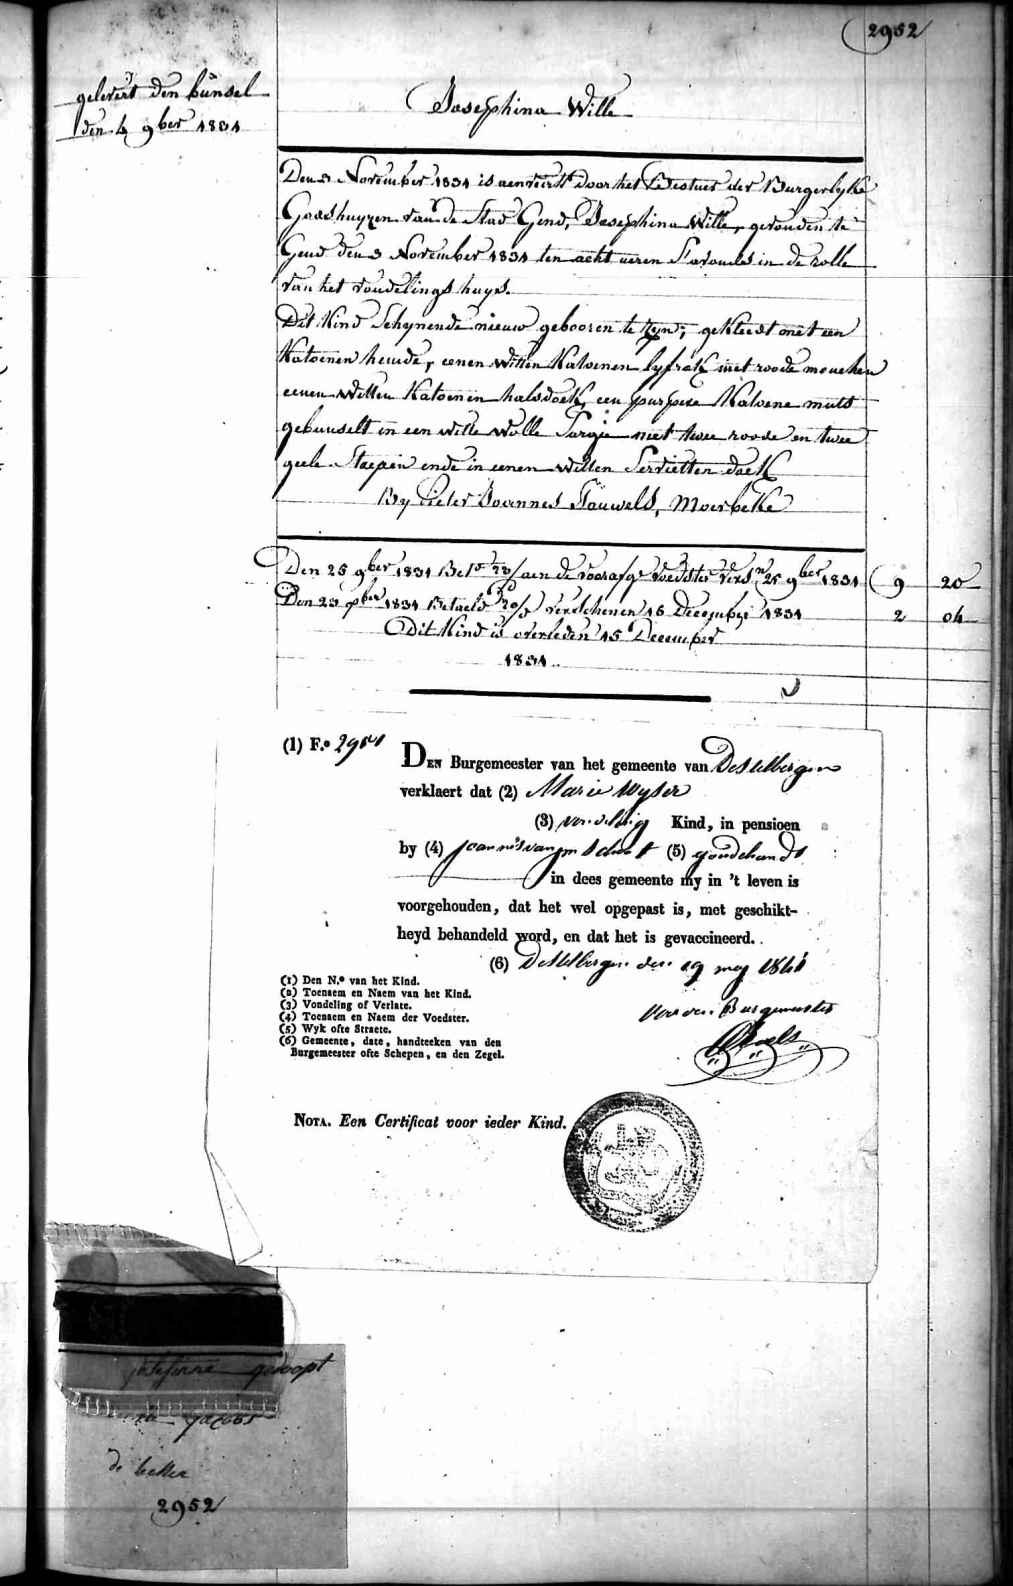 2952
gelevert den bunsel
den 4 9ber 1831
Josephina Wille
Den 3 November 1831 is aenveert door het Bestuer der Burgerlyke
Godshuyzen van de Stad Gend, Josephina Wille, gevonden te
Gend den 3 November 1831 ten acht ueren S'avonds in de rolle
van het vondelings huys.
Dit Kind Schynende nieuw gebooren te zyn, gekleed met een
Katoenen hemde, eenen witten Katoenen lyfrok met roode mouchen
eenen witten Katoenen halsdoek, een purpere Katoene muts
gebunselt in een witte wolle Sargie met twee roode en twee
geele Staepen ende in eenen witten Servietten doek
By Pieter Joannes Pauwels, Moerbeke
Den 25 9ber 1831 aen de voorafge voedster 25 9ber 1831 9 20
Den 23 1831 Betaeld verschenen 16 December 1831 2 04
Dit Kind is overleden 15 December
1831..
(1) F.o 2951
DEN Burgemeester van het gemeente van Destelbergen
verklaert dat (2) Marie Wyser
(3) vondeling Kind, in pensioen
by (4) (5)
in dees gemeente my in 't leven is
voorgehouden, dat het wel opgepast is, met geschikt-
heyd behandeld word, en dat het is gevaccineerd.
(6) Destelbergen den 19 mey 1841
(1) Den N.o van het Kind.
(2) Toenaem en Naem van het Kind.
(3) Vondeling of Verlate.
(4) Toenaem en Naem der Voedster.
(5) Wyk ofte Straete.
(6) Gemeente, date, handteeken van den
Burgemeester ofte Schepen, en den Zegel.
Voor den Burgemeester
NOTA. Een Certificat voor ieder Kind.
gedoopt
jacobs
de
2952